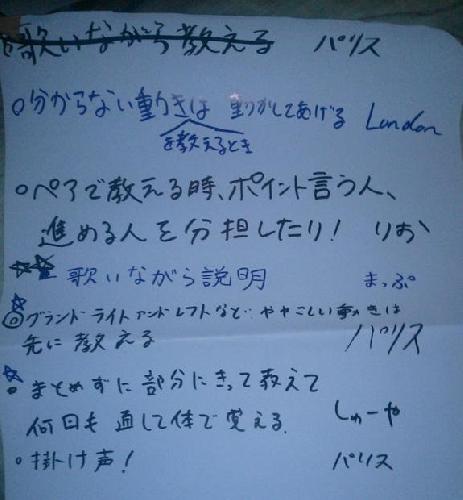 歌いながら教える パリス
○分からない動きは 動かしてあげる London
を教えるとき
○ペアで教える時、ポイント言う人、
進める人を分担したり! りお
歌いながら説明 まっぷ
☆◎グランドライトアンドレフトなど ややこしい動きは
先に教える パリス
☆○まとめずに部分にきって教えて
何回も通して体で覚える しゅーや
○掛け声! パリス